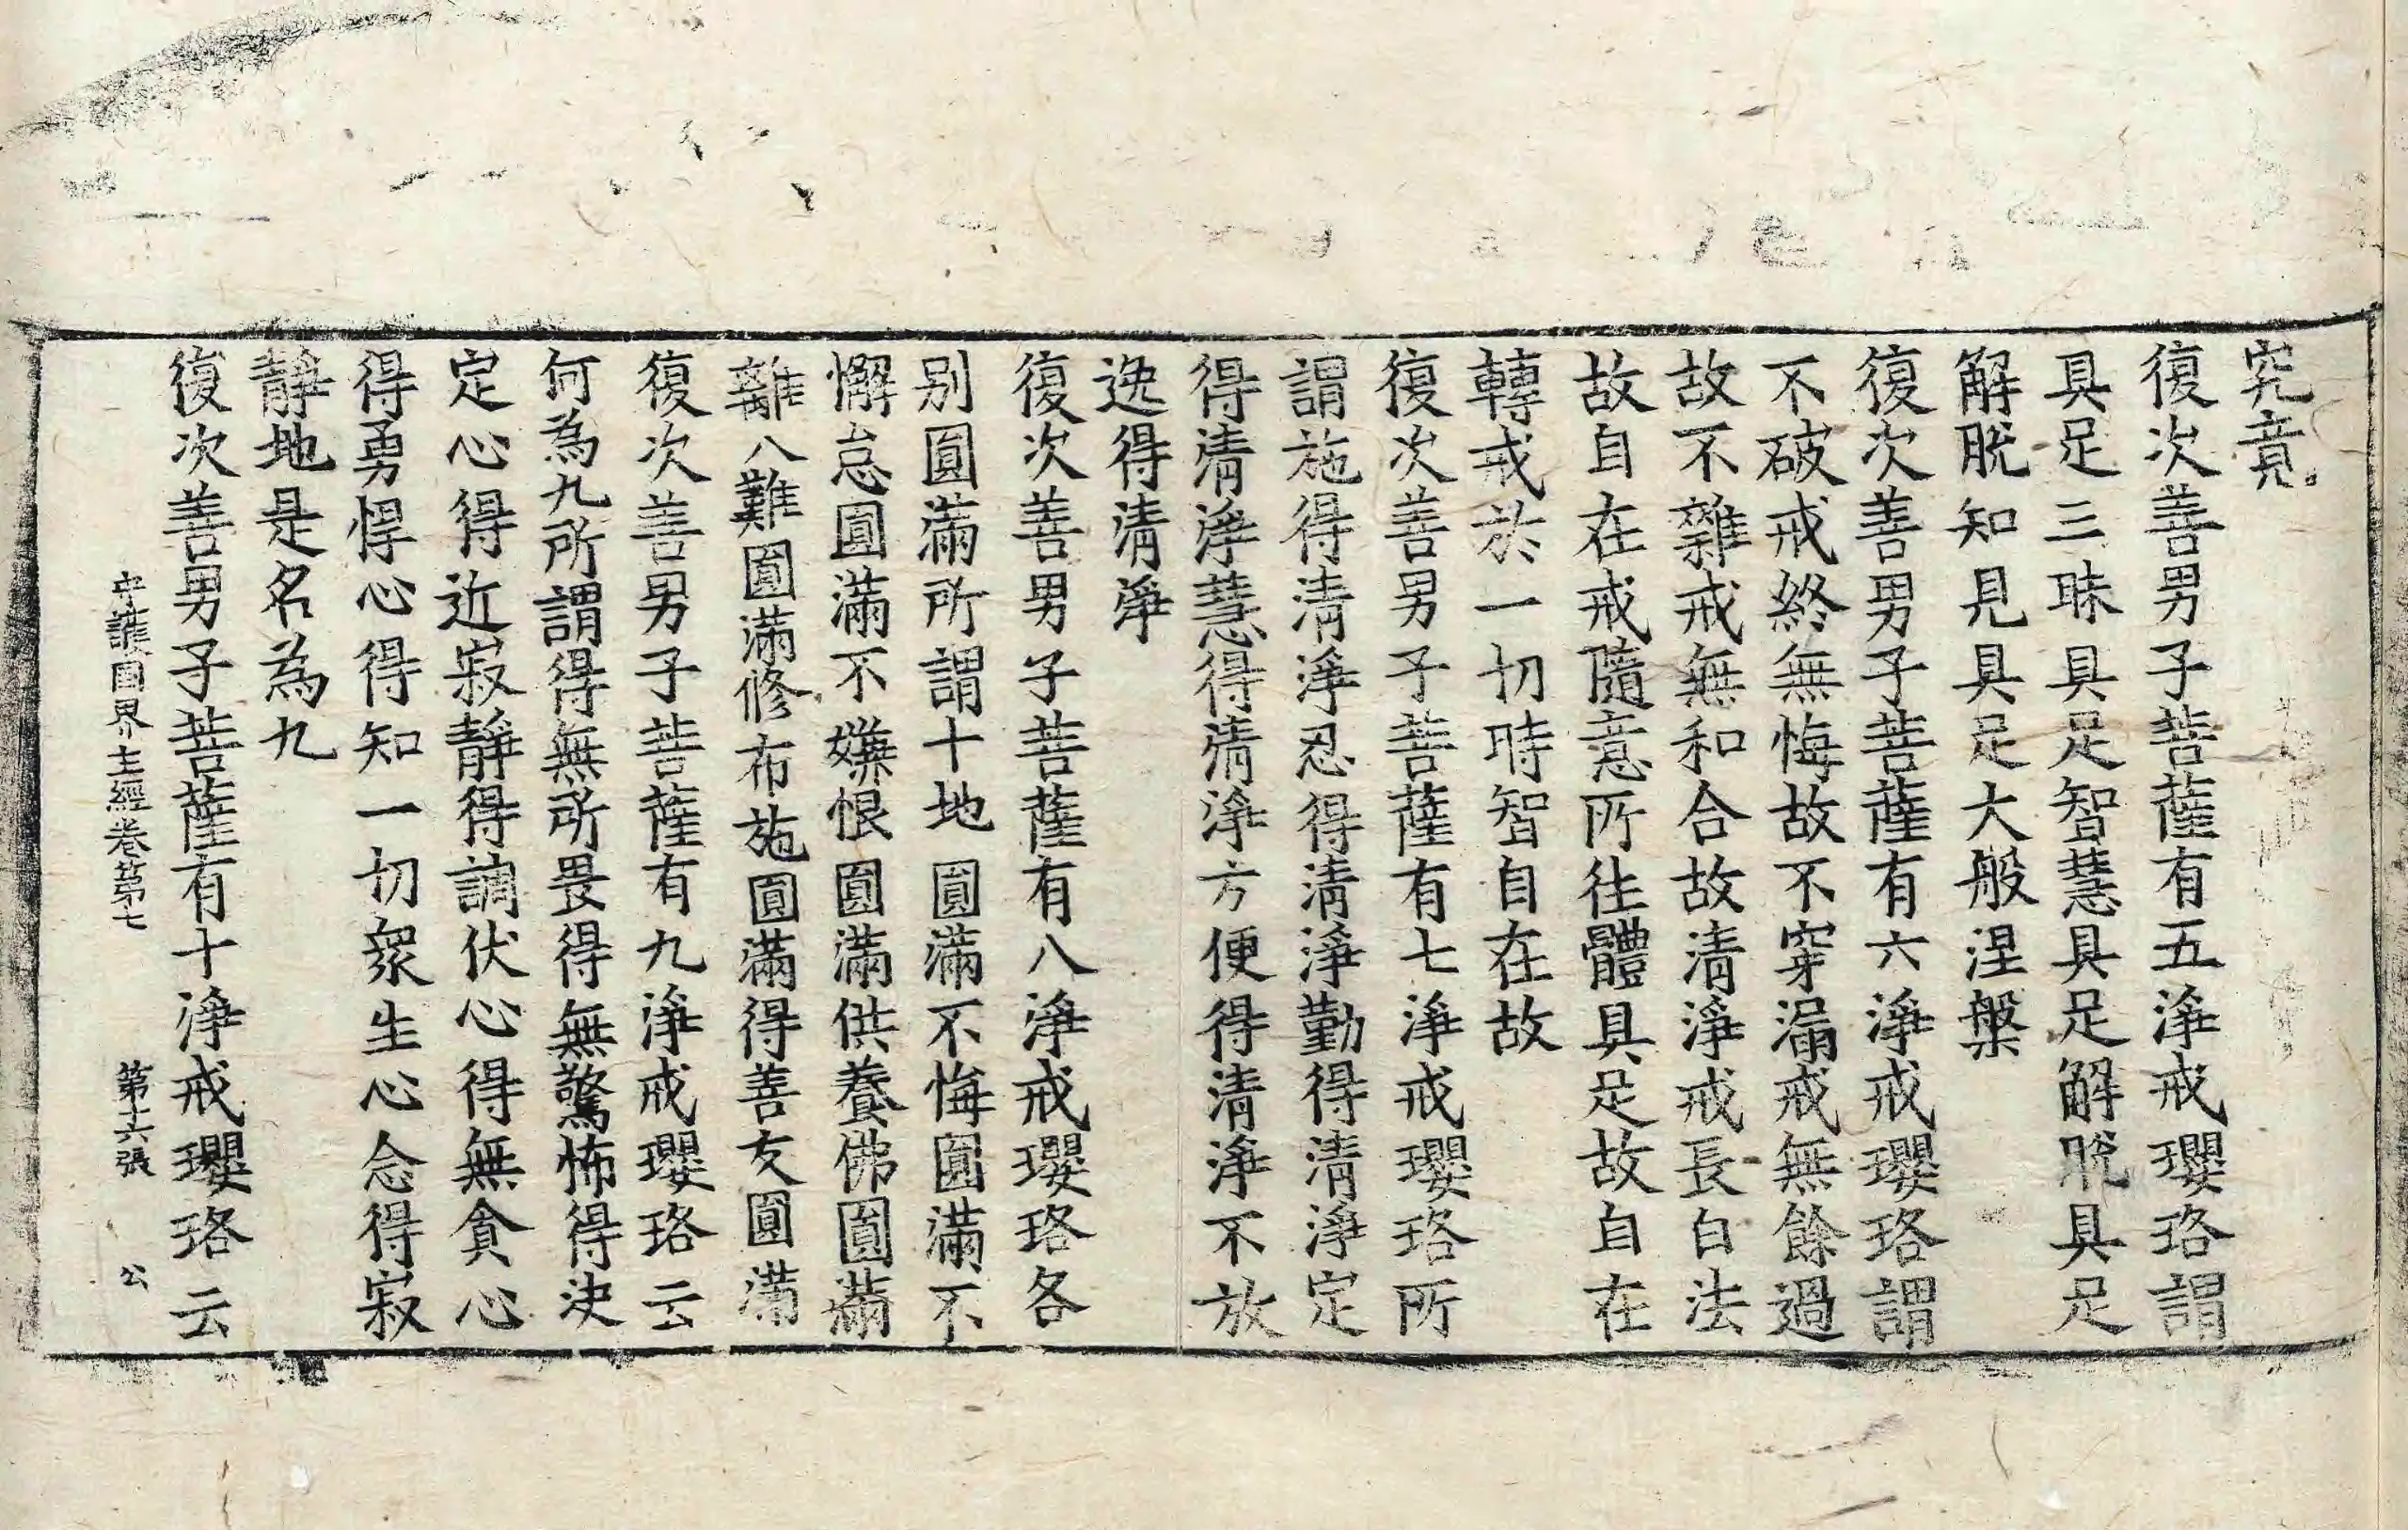 究竟
復次善男子菩薩有五淨戒瓔珞謂
具足三昧具足智慧具足解脫具足
解脫知見具足大般涅槃
復次善男子菩薩有六淨戒瓔珞謂
不破戒終無悔故不穿漏戒無餘過
故不雜戒無和合故清淨戒長白法
故自在戒隨意所往體具足故自在
轉戒於一切時智自在故
復次善男子菩薩有七淨戒瓔珞所
謂施得清淨忍得清淨勤得清淨定
得清淨慧得清淨方便得清淨不放
逸得清淨
復次善男子菩薩有八淨戒瓔珞各
別圓滿所謂十地圓滿不悔圓滿不
懈怠圓滿不嫌恨圓滿供養佛圓滿
離八難圓滿修布施圓滿得善友圓滿
復次善男子菩薩有九淨戒瓔珞云
何為九所謂得無所畏得無驚怖得決
定心得近寂靜得調伏心得無貪心
得勇悍心得知一切眾生心念得寂
靜地是名為九
復次善男子菩薩有十淨戒瓔珞云
守護國界主經卷第七 第十六張 公